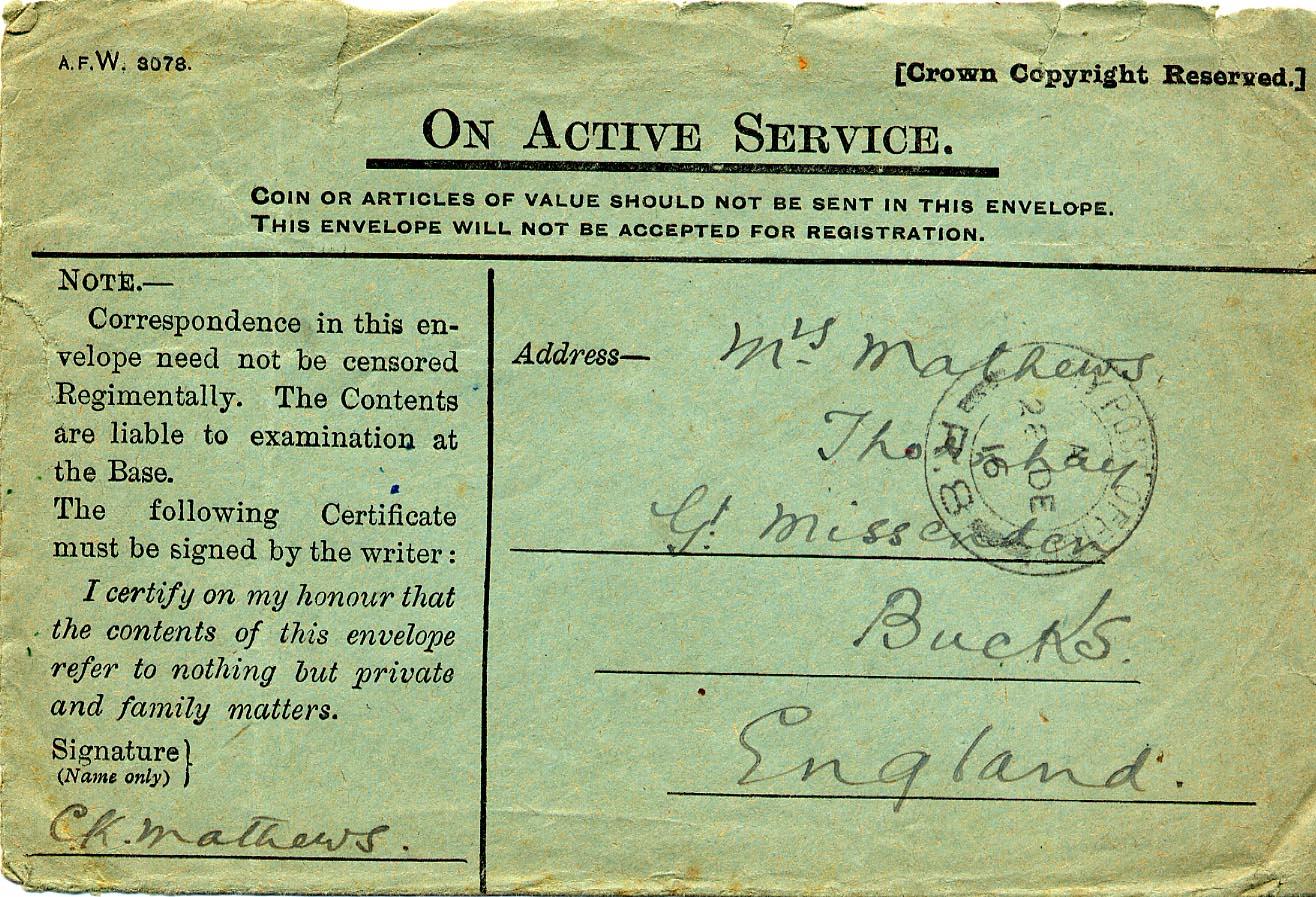 A.F.W. 3078.
[Crown Copyright Reserved.]
ON ACTIVE SERVICE.
COIN OR ARTICLES OF VALUE SHOULD NOT BE SENT IN THIS ENVELOPE.
THIS ENVELOPE WILL NOT BE ACCEPTED FOR REGISTRATION.
NOTE.—
Correspondence in this en-
velope need not be censored
Regimentally. The Contents
are liable to examination at
the Base.
The following Certificate
must be signed by the writer:
I certify on my honour that
the contents of this envelope
refer to nothing but private
and family matters.
Signature}
(Name only)
CK. Mathews.
Address—
Mrs Mathews.
Gt. Missenden
Bucks.
England.
POST OFFICE
R.8
DE
16